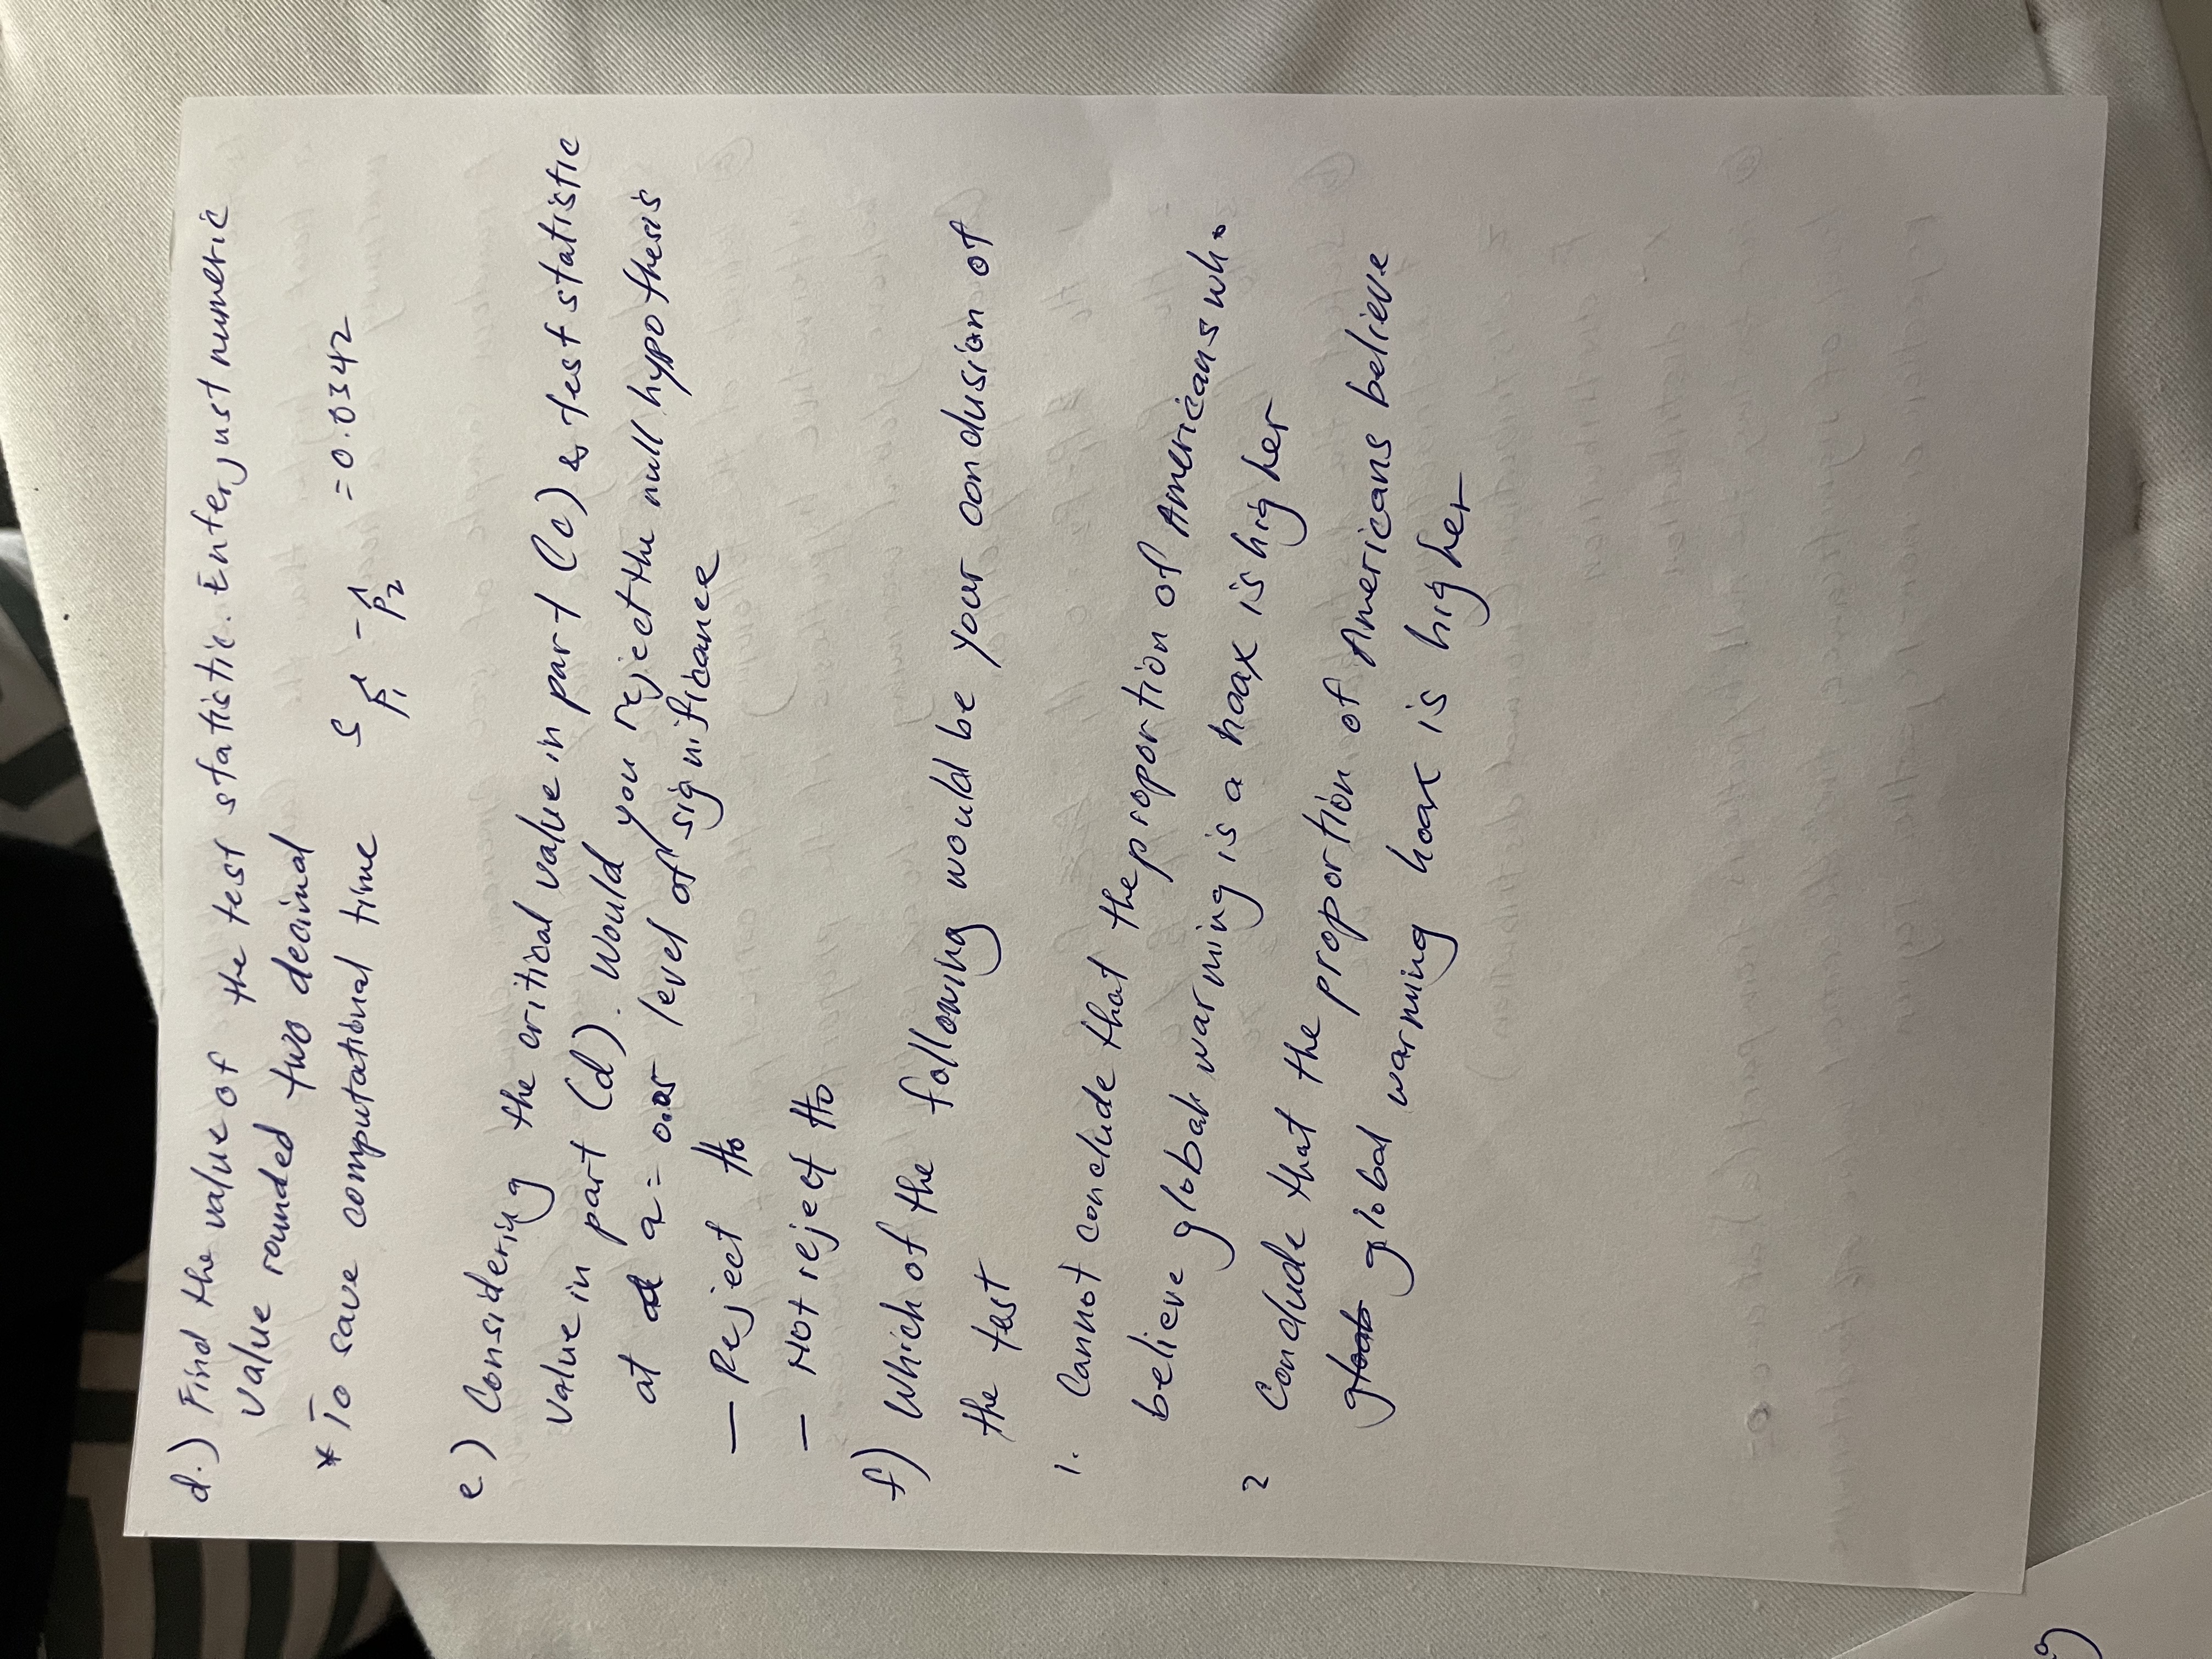 d.) Find the value of the test statistic. Enter just numeric
value rounded two decimal
* To save computational time S p̂₁ - p̂₂ = 0.0342
e.) Considering the critical value in part (c) & test statistic
value in part (d). Would you reject the null hypothesis
at a = 0.05 level of significance
— Reject H₀
— Not reject H₀
f) Which of the following would be your conclusion of
the test
1. Cannot conclude that the proportion of Americans who
believe global warming is a hoax is higher
2 Conclude that the proportion of Americans believe
global warming hoax is higher